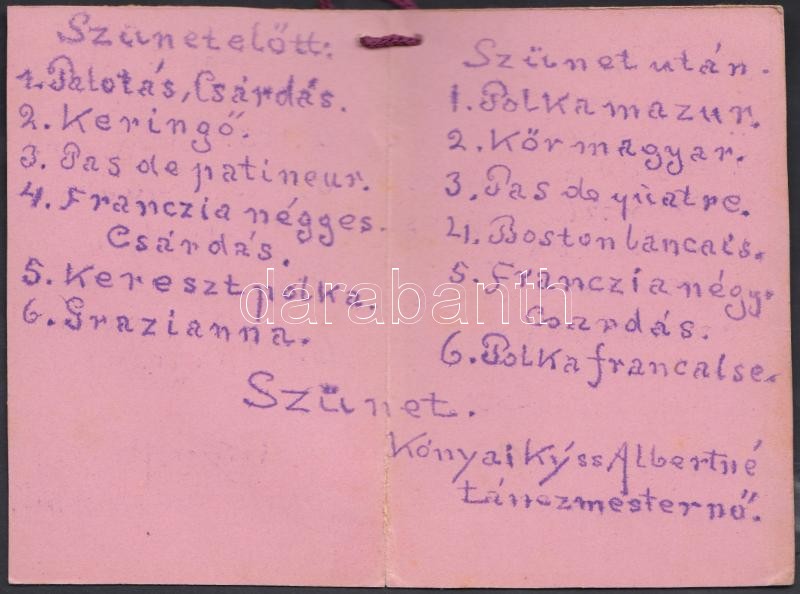 Szünetelőtt:
1. Palotás, Csárdás.
2. Keringő.
3. Pas de patineur.
4. Franczia négges.
Csárdás.
5. Keresztpolka.
6. Grazianna.
Szünet után.
1. Polka mazur.
2. Kőr magyar.
3. Pas de quatre.
4. Boston lancais.
5. Franczia négy.
Csardás.
6. Polka francalse.
Szünet.
Kónyai Kýss Albertné
tánczmesternő.
darabanth